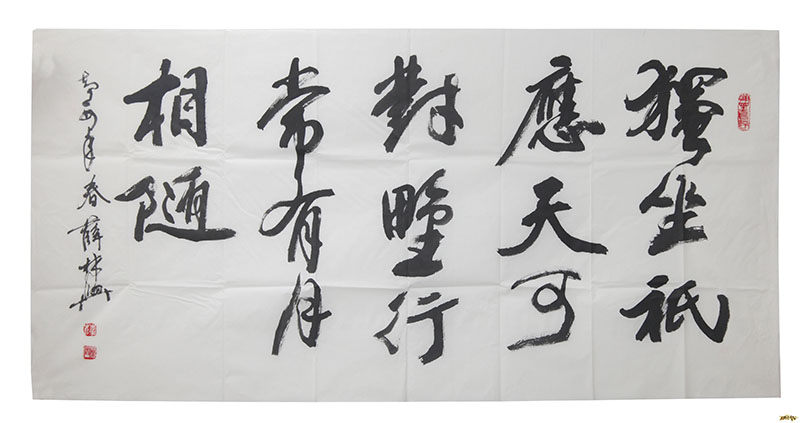 獨坐祇
應天可
對野行
常有月
相随
年春薛林興